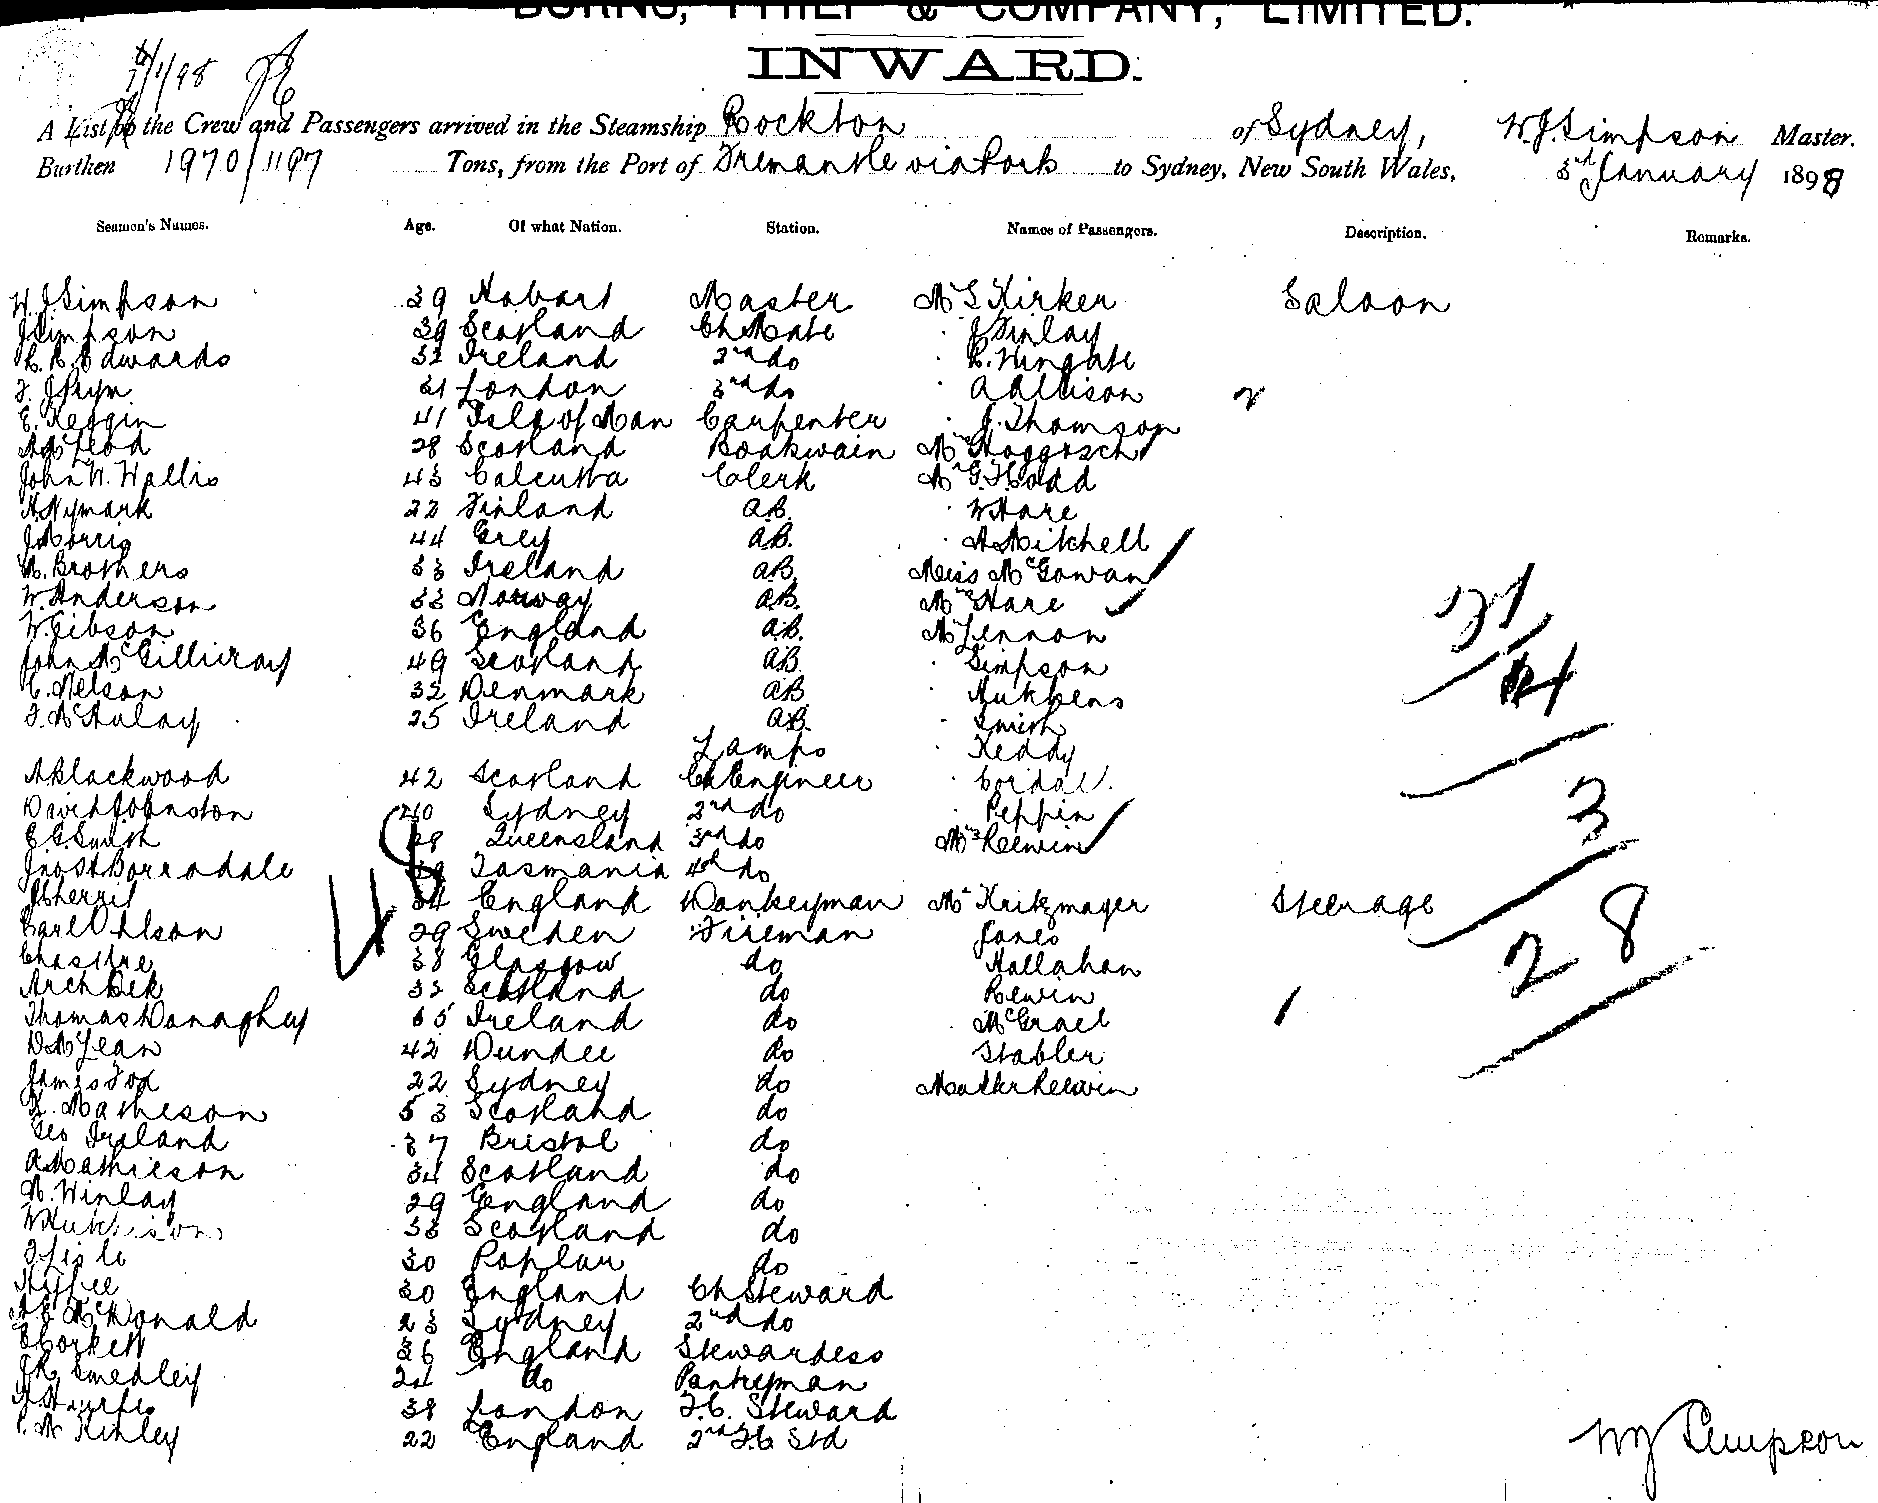 BURNS, PHILP & COMPANY, LIMITED.
INWARD.
/1/98
A List of the Crew and Passengers arrived in the Steamship Rockton of Sydney, W.J. Simpson Master.
Burthen 1970/1197 Tons, from the Port of Fremantle via Ports to Sydney, New South Wales, 3rd January 1898
Seamen's Names. Age. Of what Nation. Station. Names of Passengers. Description. Remarks.
W. J. Simpson 39 Hobart Master Mr G Kirker Saloon
J Simpson 39 Scotland Ch Mate J Finlay
Edwards 32 Ireland 2nd do Wingate
F. J 21 London 3rd do A Allison 2
E. Keggin 41 Isle of Man Carpenter J. Thomson
A McLeod 28 Scotland Boatswain Mrs
John W. Wallis 43 Calcutta Clerk Mr G.
A Nymark 22 Finland A.B. W Hare
J Morris 44 Grey A.B. A Mitchell
Brothers 33 Ireland A.B. Miss McGowan
W. Anderson 33 Norway A.B. Mrs Hare
W. Gibson 36 England A.B. Mr Lennon 31
John McGillivray 49 Scotland A.B. Simpson 4
C. Nelson 32 Denmark A.B.
F. McAulay 25 Ireland A.B. Smith
Lamps Keddy
A Blackwood 42 Scotland Ch Engineer
David Johnston 40 Sydney 2nd do Peppin 3
E. G. Smith 28 Queensland 3rd do Mrs Relwin
Borrodale Tasmania 4th do
J Sherrit 34 England Donkeyman Mr Kritzmayer Steerage
48
Carl Ohlson 29 Sweden Fireman Jones 28
Chas 38 Glasgow do Hallahan
Arch 32 Scotland do Relwin
Thomas Donaghey Ireland do McGrael 1
D McLean 42 Dundee do Stabler
James Fox 22 Sydney do Master Relwin
Matheson 53 Scotland do
Geo Ireland 37 Bristol do
A Mathieson 34 Scotland do
Winlay 29 England do
W Hutchison 33 Scotland do
Lisle 30 Poplar do
30 England Ch Steward
McDonald 23 Sydney 2nd do
E Corkett 36 England Stewardess
Smedley 21 do Pantryman
38 London F.C. Steward
McKinley 22 England 2nd F.C. Std
W J Simpson